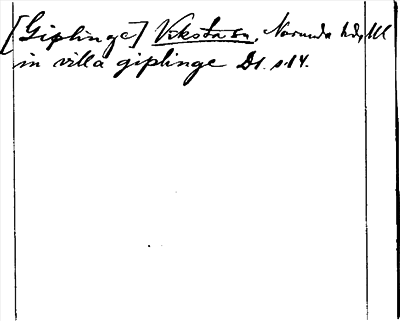 [Giplinge] Voksta sn, Norunda hd, Ul
in villa giplinge DS. s.84.